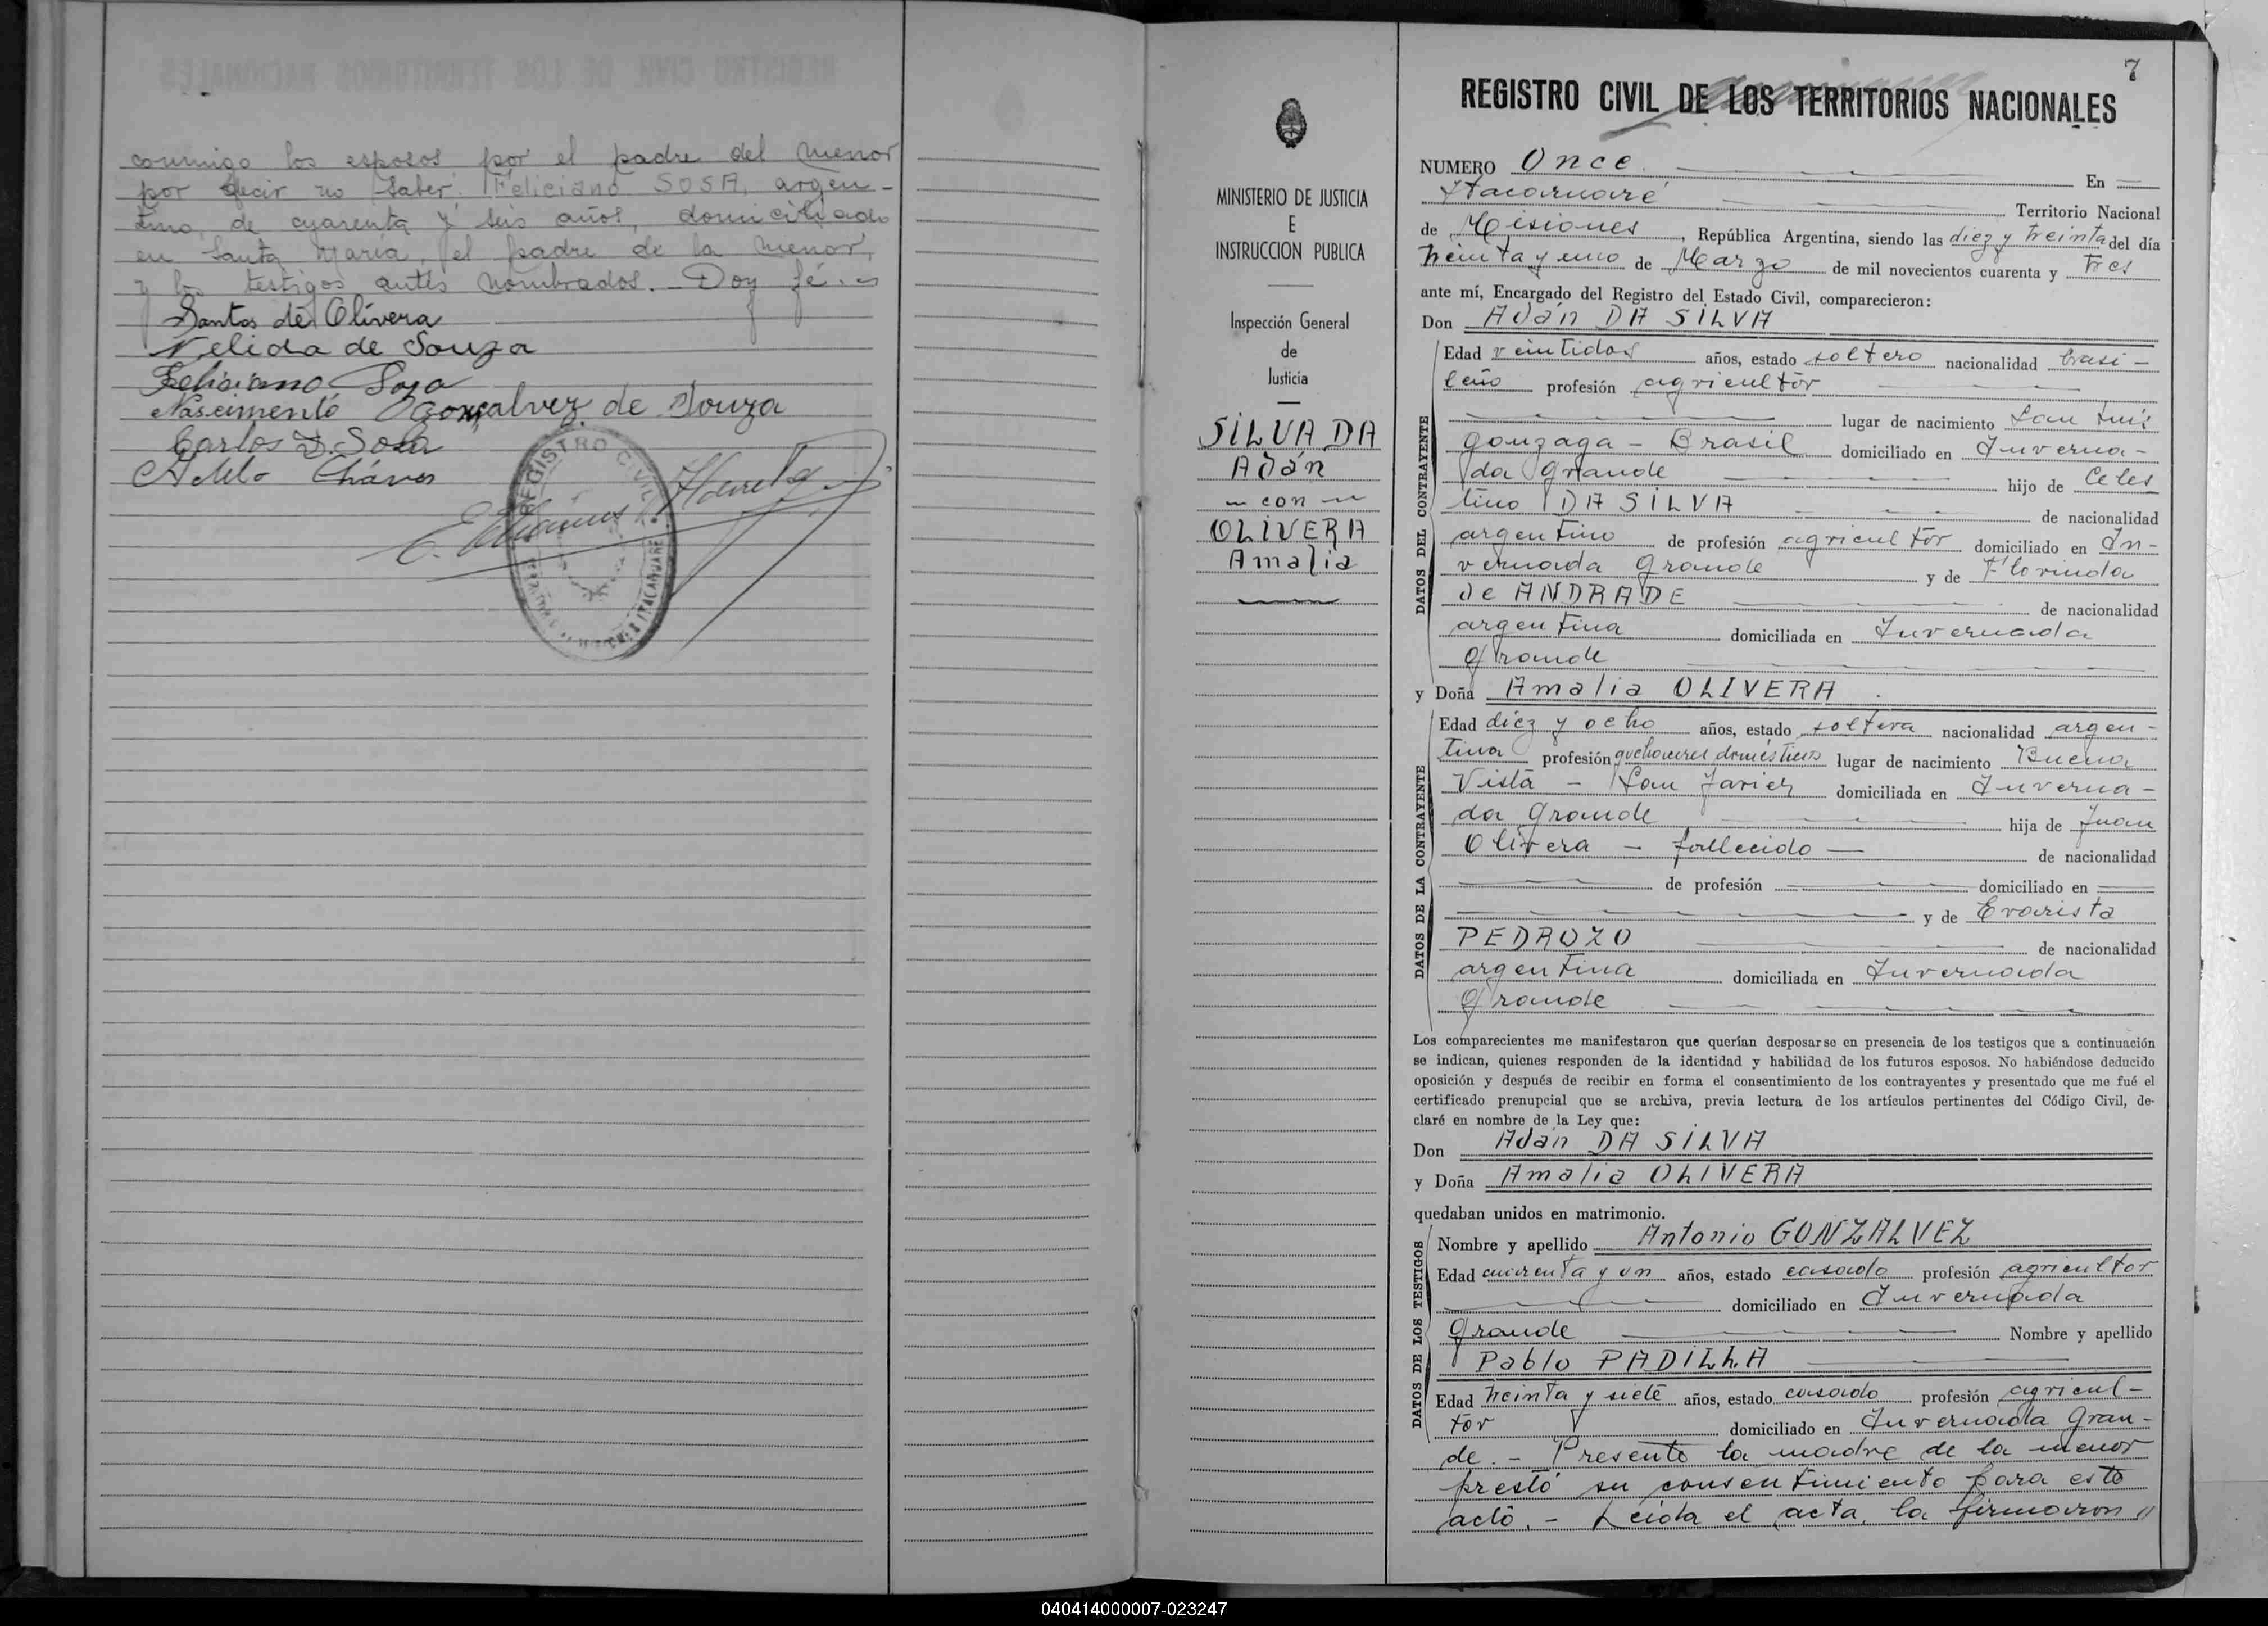 conmigo los esposos por el padre del menor
por decir no saber. Feliciano SOSA, argen-
tino, de cuarenta y seis años, domiciliado
en Santa María, el padre de la menor,
y los testigos antes nombrados. - Doy fé. -
Santos de Olivera
Nelida de Souza
Feliciano Sosa
Nascimento Gonçalvez de Souza
Carlos D. Sosa
Chávez
REGISTRO CIVIL
ITACARUARE
MINISTERIO DE JUSTICIA
E
INSTRUCCION PUBLICA
Inspección General
de
Justicia
SILVA DA
Adán
- con -
OLIVERA
Amalia
7
REGISTRO CIVIL DE LOS TERRITORIOS NACIONALES
NUMERO Once En
Itacaruaré Territorio Nacional
de Misiones, República Argentina, siendo las diez y treinta del día
treinta y uno de Marzo de mil novecientos cuarenta y tres
ante mí, Encargado del Registro del Estado Civil, comparecieron:
Don Adán DA SILVA
DATOS DEL CONTRAYENTE
Edad veintidos años, estado soltero nacionalidad brasi-
leño profesión agricultor
lugar de nacimiento San Luis
Gonzaga - Brasil domiciliado en Inverna-
da Grande hijo de Celes
tino DA SILVA de nacionalidad
argentino de profesión agricultor domiciliado en In-
vernada Grande y de Florinda
de ANDRADE de nacionalidad
argentina domiciliada en Invernada
Grande
y Doña Amalia OLIVERA
DATOS DE LA CONTRAYENTE
Edad diez y ocho años, estado soltera nacionalidad argen-
tina profesión quehaceres domésticos lugar de nacimiento Buena
Vista - San Javier domiciliada en Inverna-
da Grande hija de Juan
Olivera - fallecido - de nacionalidad
de profesión domiciliado en
y de Evarista
PEDROZO de nacionalidad
argentina domiciliada en Invernada
Grande
Los comparecientes me manifestaron que querían desposarse en presencia de los testigos que a continuación
se indican, quienes responden de la identidad y habilidad de los futuros esposos. No habiéndose deducido
oposición y después de recibir en forma el consentimiento de los contrayentes y presentado que me fué el
certificado prenupcial que se archiva, previa lectura de los artículos pertinentes del Código Civil, de-
claré en nombre de la Ley que:
Don Adán DA SILVA
y Doña Amalia OLIVERA
quedaban unidos en matrimonio.
DATOS DE LOS TESTIGOS
Nombre y apellido Antonio GONZALVEZ
Edad cuarenta y un años, estado casado profesión agricultor
domiciliado en Invernada
Grande Nombre y apellido
Pablo PADILLA
Edad treinta y siete años, estado casado profesión agricul-
tor domiciliado en Invernada Gran-
de. - Presente la madre de la menor
prestó su consentimiento para este
acto. - Leída el acta, la firmaron //
040414000007-023247